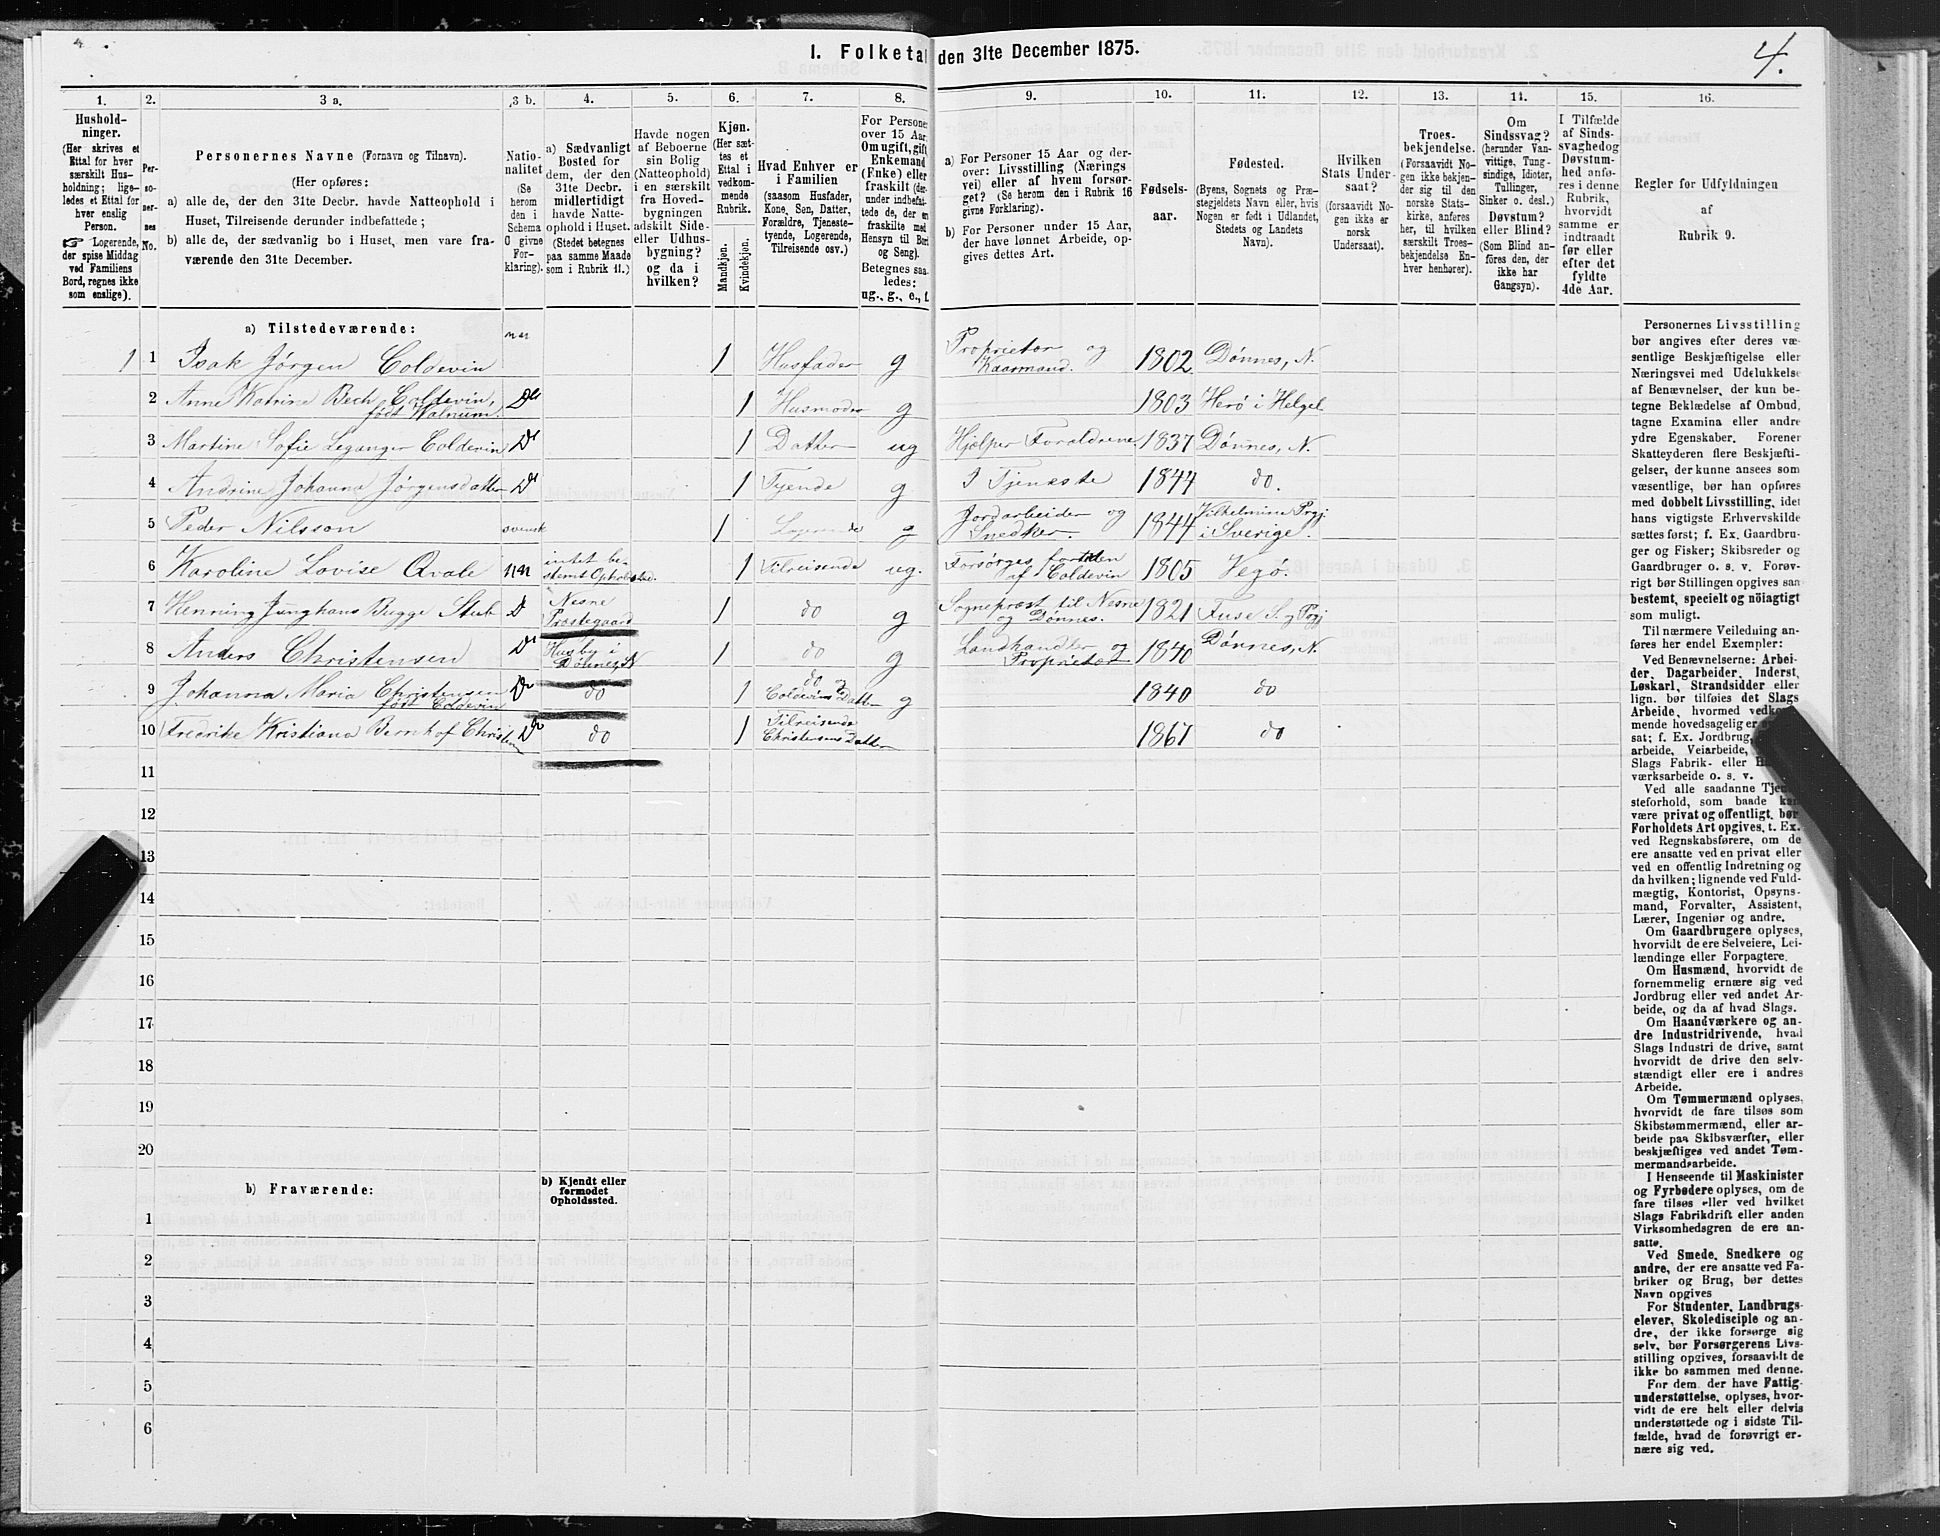 4.
1. Folketal den 31te December 1875.
1.
Hushold-
ninger.
(Her skrives et
Ettal for hver
særskilt Hus-
holdning; lige-
ledes et Ettal for
hver enslig
Person.
☞ Logerende,
der spise Middag
ved Familiens
Bord, regnes ikke
som enslige).
2.
Per-
so-
ner-
nes
No.
3 a.
Personernes Navne (Fornavn og Tilnavn).
(Her opføres:
a) alle de, der den 31te Decbr. havde Natteophold i
Huset, Tilreisende derunder indbefattede;
b) alle de, der sædvanlig bo i Huset, men vare fra-
værende den 31te December.
3 b.
Natio-
nalitet
(Se
herom
den i
Schema
C givne
For-
klaring).
4.
a) Sædvanligt
Bosted for
dem, der den
31te Decbr.
midlertidigt
havde Natte-
ophold i Huset.
(Stedet betegnes
paa samme Maade
som i Rubrik 11.)
5.
Havde nogen
af Beboerne
sin Bolig
(Natteophold)
i en særskilt
fra Hoved-
bygningen
adskilt Side-
eller Udhus-
bygning?
og da i
hvilken?
6.
Kjøn.
(Her sæt-
tes et
Ettal i
vedkom-
mende
Rubrik.
Mandkjøn.
Kvindekjøn.
7.
Hvad Enhver er
i Familien
(saasom Husfader,
Kone, Søn, Datter,
Forældre, Tjeneste-
tyende, Logerende,
Tilreisende osv.)
8.
For Persone
over 15 Aar
Om ugift, gift
Enkemand
(Enke) eller
fraskilt (der-
under indbefat-
tede de, der er
fraskilte med
Hensyn til Bord
og Seng).
Betegnes saa-
ledes:
ug., g., e., f.
9.
a) For Personer 15 Aar og der-
over: Livsstilling (Nærings
vei) eller af hvem forsør-
get? (Se herom den i Rubrik 16
givne Forklaring).
b) For Personer under 15 Aar,
der have lønnet Arbeide, op-
gives dettes Art.
10.
Fødsels-
aar.
11.
Fødested.
(Byens, Sognets og Præ-
stegjeldets Navn eller, hvis
Nogen er født i Udlandet,
Stedets og Landets
Navn).
12.
Hvilken
Stats Under-
saat?
(forsaavidt No-
gen ikke er
norsk
Undersaat).
13.
Troes-
bekjendelse.
(Forsaavidt No-
gen ikke bekjen-
der sig til den
norske Stats-
kirke, anføres
her, til hvilken
særskilt Troes-
bekjendelse En-
hver henhører).
14.
Om
Sindssvag?
(herunder Van-
vittige, Tung-
sindige, Idioter,
Tullinger,
Sinker o. desl.)
Døvstum?
eller Blind?
(Som Blind an-
føres den, der
ikke har
Gangsyn).
15.
I Tilfælde
af Sinds-
svaghed og
Døvstum-
hed anfø-
res i denne
Rubrik,
hvorvidt
samme er
indtraadt
før eller
efter det
fyldte
4de Aar.
16.
Regler for Udfyldningen
af
Rubrik 9.
a) Tilstedeværende:
1 1 Isak Jørgen Coldevin 1 Husfader g Proprietær og Kaarmand. 1802 Dønnes, N.
2 Anne Katrine Bech Coldevin, født Walnum. Do 1 Husmoder g 1803 Herø i Helgel.
3 Martine Sofie Leganger Coldevin Do 1 Datter ug Hjælper Forældrene 1837 Dønnes, N.
4 Andrine Johanna Jørgensdatter Do 1 Tyende g I Tjeneste 1844 do.
5 Peder Nilsson svensk 1 g Jordarbeider og Snedker. 1844 Vilhelmina Prgj i Sverige.
6 Karoline Lovise Qvale intet be-stemt Opholdssted. 1 Tilreisende ug. Forsørges af Coldevin 1805 Vegø.
7 Henning Junghans Bugge Stub Do Nesne Præstegaard 1 do g Sogneprest til Nesne og Dønnes. 1821 Fuse S. og Prgj
8 Anders Christensen Do Husby i Dønnes N 1 do g Landhandler og Proprietær 1840 Dønnes, N.
9 Johanna Maria Christensen født Coldevin Do do 1 do og Coldevins Datter g 1840 do
10 Fredrike Kristiana Bernhof Christen Do do 1 Tilreisende Christensens Datter 1867 do
11
12
13
14
15
16
17
18
19
20
b) Fraværende:
b) Kjendt eller
formodet
Opholdssted.
1
2
3
4
5
6
Personernes Livsstilling
bør angives efter deres væ-
sentlige Beskjæftigelse eller
Næringsvei med Udelukkelse
af Benævnelser, der kun be-
tegne Beklædelse af Ombud,
tagne Examina eller andre
ydre Egenskaber. Forener
Skatteyderen flere Beskjæfti-
gelser, der kunne ansees som
væsentlige, bør han opføres
med dobbelt Livsstilling, idet
hans vigtigste Erhvervskilde
sættes først; f. Ex. Gaardbru-
ger og Fisker; Skibsreder og
Gaardbruger o. s. v. Forøv-
rigt bør Stillingen opgives saa
bestemt, specielt og nøiagtigt
som muligt.
Til nærmere Veiledning an-
føres her endel Exempler:
Ved Benævnelserne: Arbei-
der, Dagarbeider, Inderst,
Løskarl, Strandsidder eller
lign. bør tilføies det Slags
Arbeide, hvormed vedkom-
mende hovedsagelig er
sat; f. Ex. Jordbrug,
arbeide, Veiarbeide,
Slags Fabrik- eller
værksarbeide o. s. v.
Ved alle saadanne Tjene-
steforhold, som baade kan
være privat og offentligt, bør
Forholdets Art opgives, t. Ex.
ved Regnskabsførere, om de
ere ansatte ved en privat eller
ved en offentlig Indretning og
da hvilken; lignende ved Fuld-
mægtig, Kontorist, Opsyns-
mand, Forvalter, Assistent,
Lærer, Ingeniør og andre.
Om Gaardbrugere oplyses,
hvorvidt de ere Selveiere, Lei-
lændinge eller Forpagtere.
Om Husmænd, hvorvidt de
fornemmelig ernære sig ved
Jordbrug eller ved andet Ar-
beide, og da af hvad Slags.
Om Haandværkere og an-
dre Industridrivende, hvad
Slags Industri de drive, samt
hvorvidt de drive den selv-
stændigt eller ere i andres
Arbeide.
Om Tømmermænd oplyses,
hvorvidt de fare tilsøs som
Skibstømmermænd, eller ar-
beide paa Skibsværfter, eller
beskjæftiges ved andet Tøm-
mermandsarbeide.
I Henseende til Maskinister
og Fyrbødere oplyses, om de
fare tilsøs eller ved hvilket
Slags Fabrikdrift eller anden
Virksomhedsgren de ere an-
satte.
Ved Smede, Snedkere og
andre, der ere ansatte ved Fa-
briker og Brug, bør dettes
Navn opgives
For Studenter, Landbrugs-
elever, Skoledisciple og an-
dre, der ikke forsørge sig
selv, bør Forsørgerens Livs-
stilling opgives, forsaavidt de
ikke bo sammen med denne.
For dem, der have Fattig-
understøttelse, oplyses, hvor-
vidt de ere helt eller delvis
understøttede og i sidste Til-
fælde, hvad de forøvrigt er-
nære sig ved.